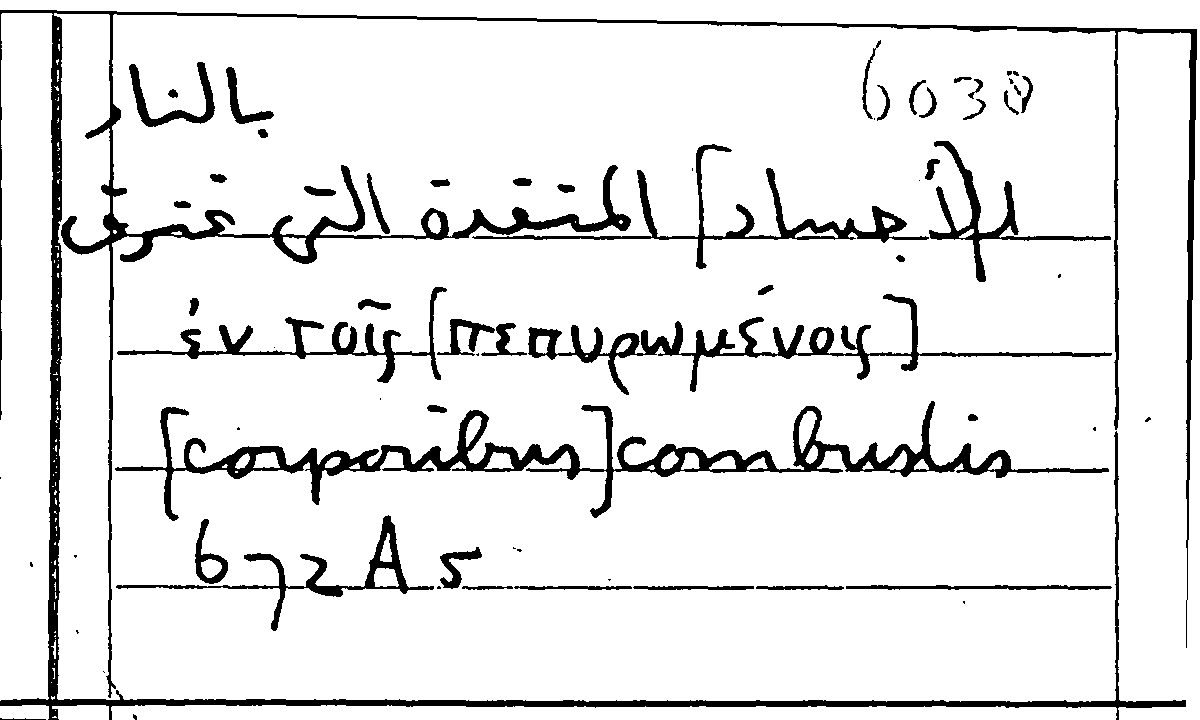 6030
بالنار
الأجساد] المتقدة التى تحترق
ἐν τοῖς [πεπυρωμένοις]
[corporibus] combustis
672 A 5